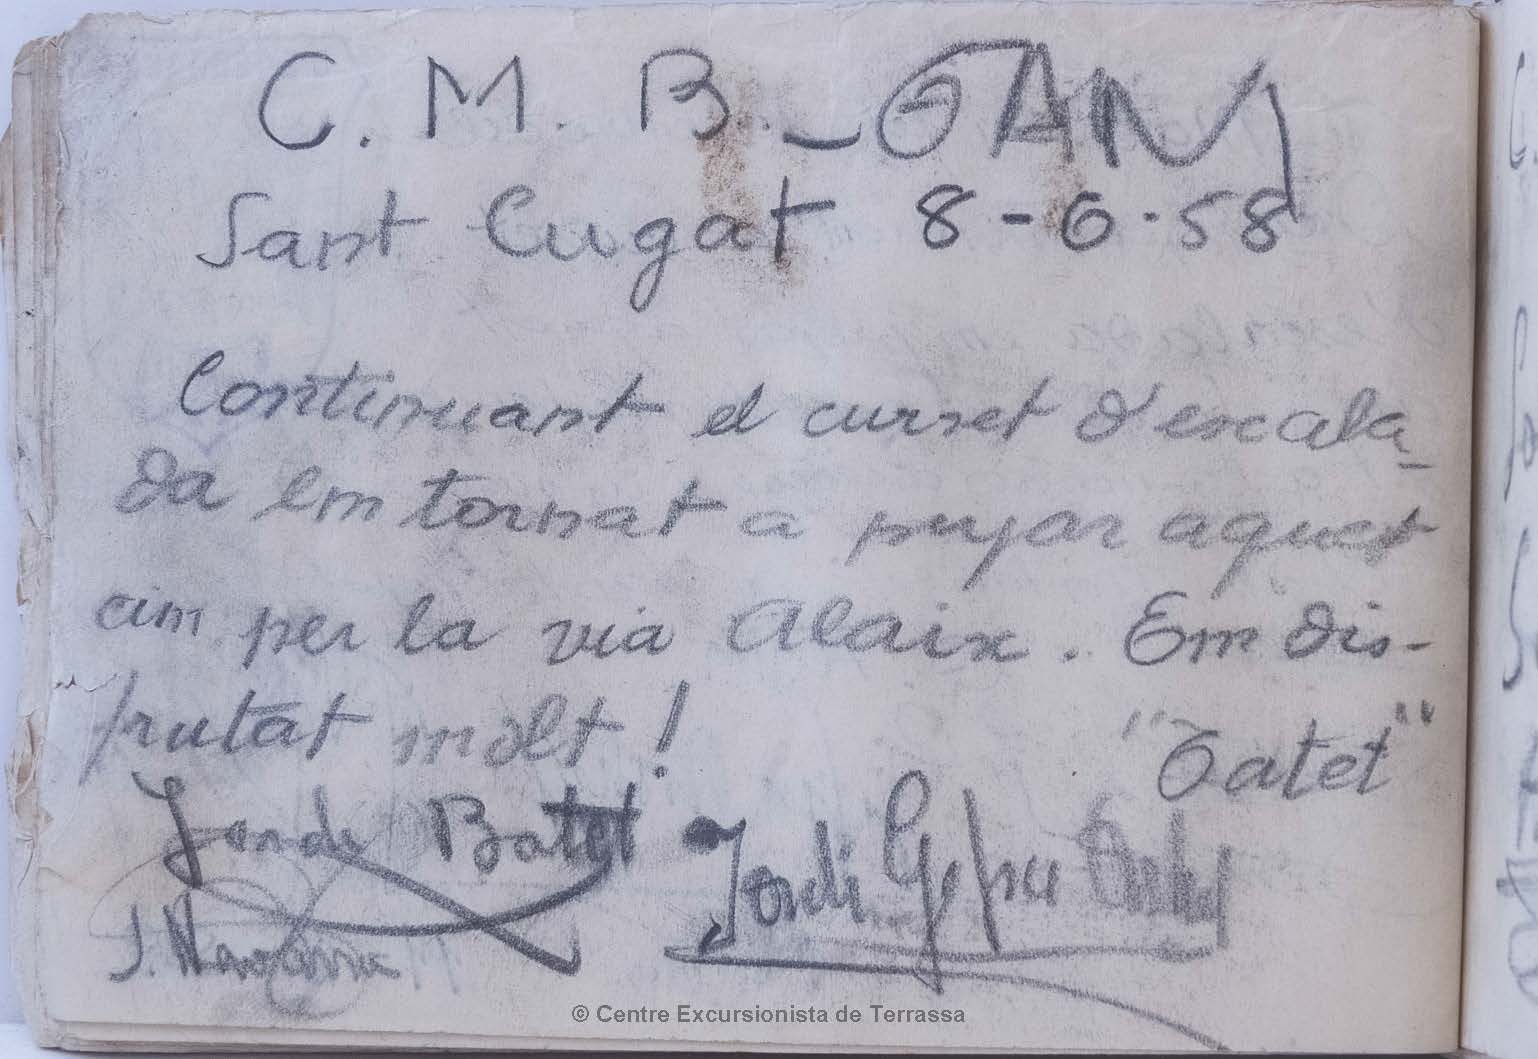 C. M. B. - GAM
Sant Cugat 8-6-58
Continuant el curset d'escala-
da em tornat a pujar aquet
cim per la via Alaix. Em dis-
frutat mòlt!
"Tatet"
Jordi Batet
Jordi
J. Navarra
© Centre Excursionista de Terrassa